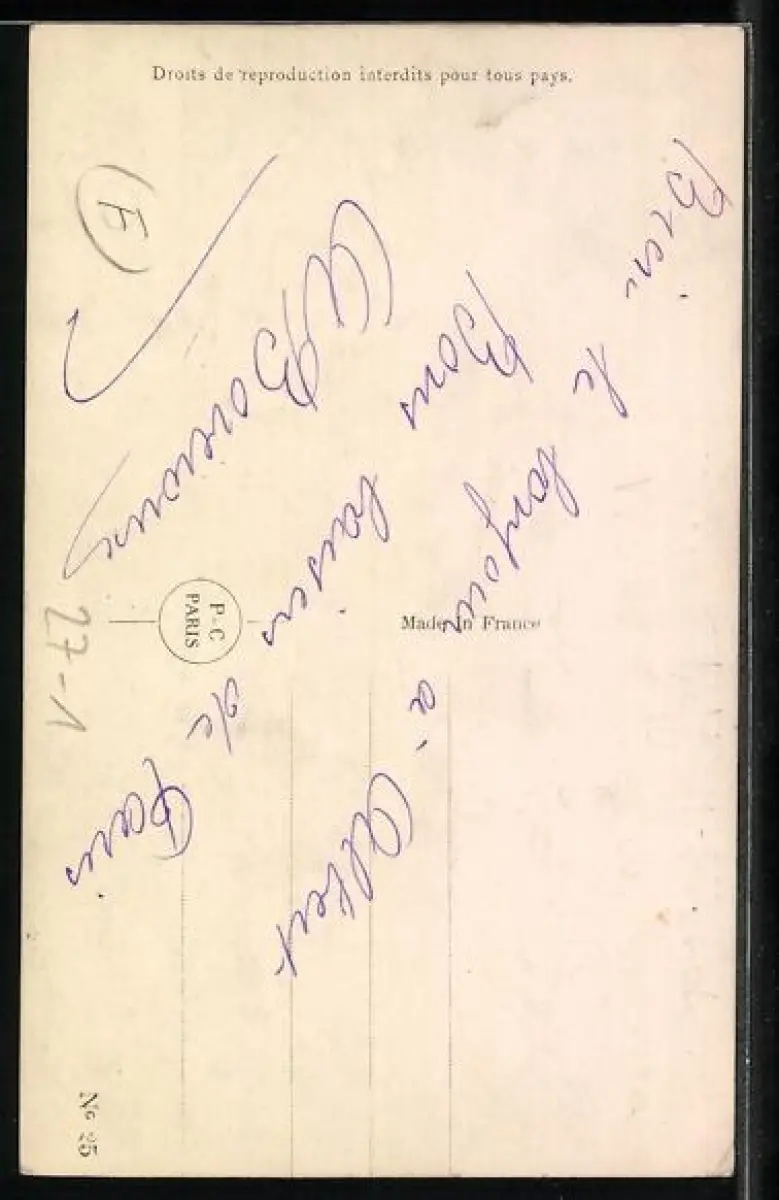 Droits de reproduction interdits pour tous pays.
E
Bien le bonjour à Albert
Bons baisers de Paris
P-C
PARIS
Made In France
27-1
No 25